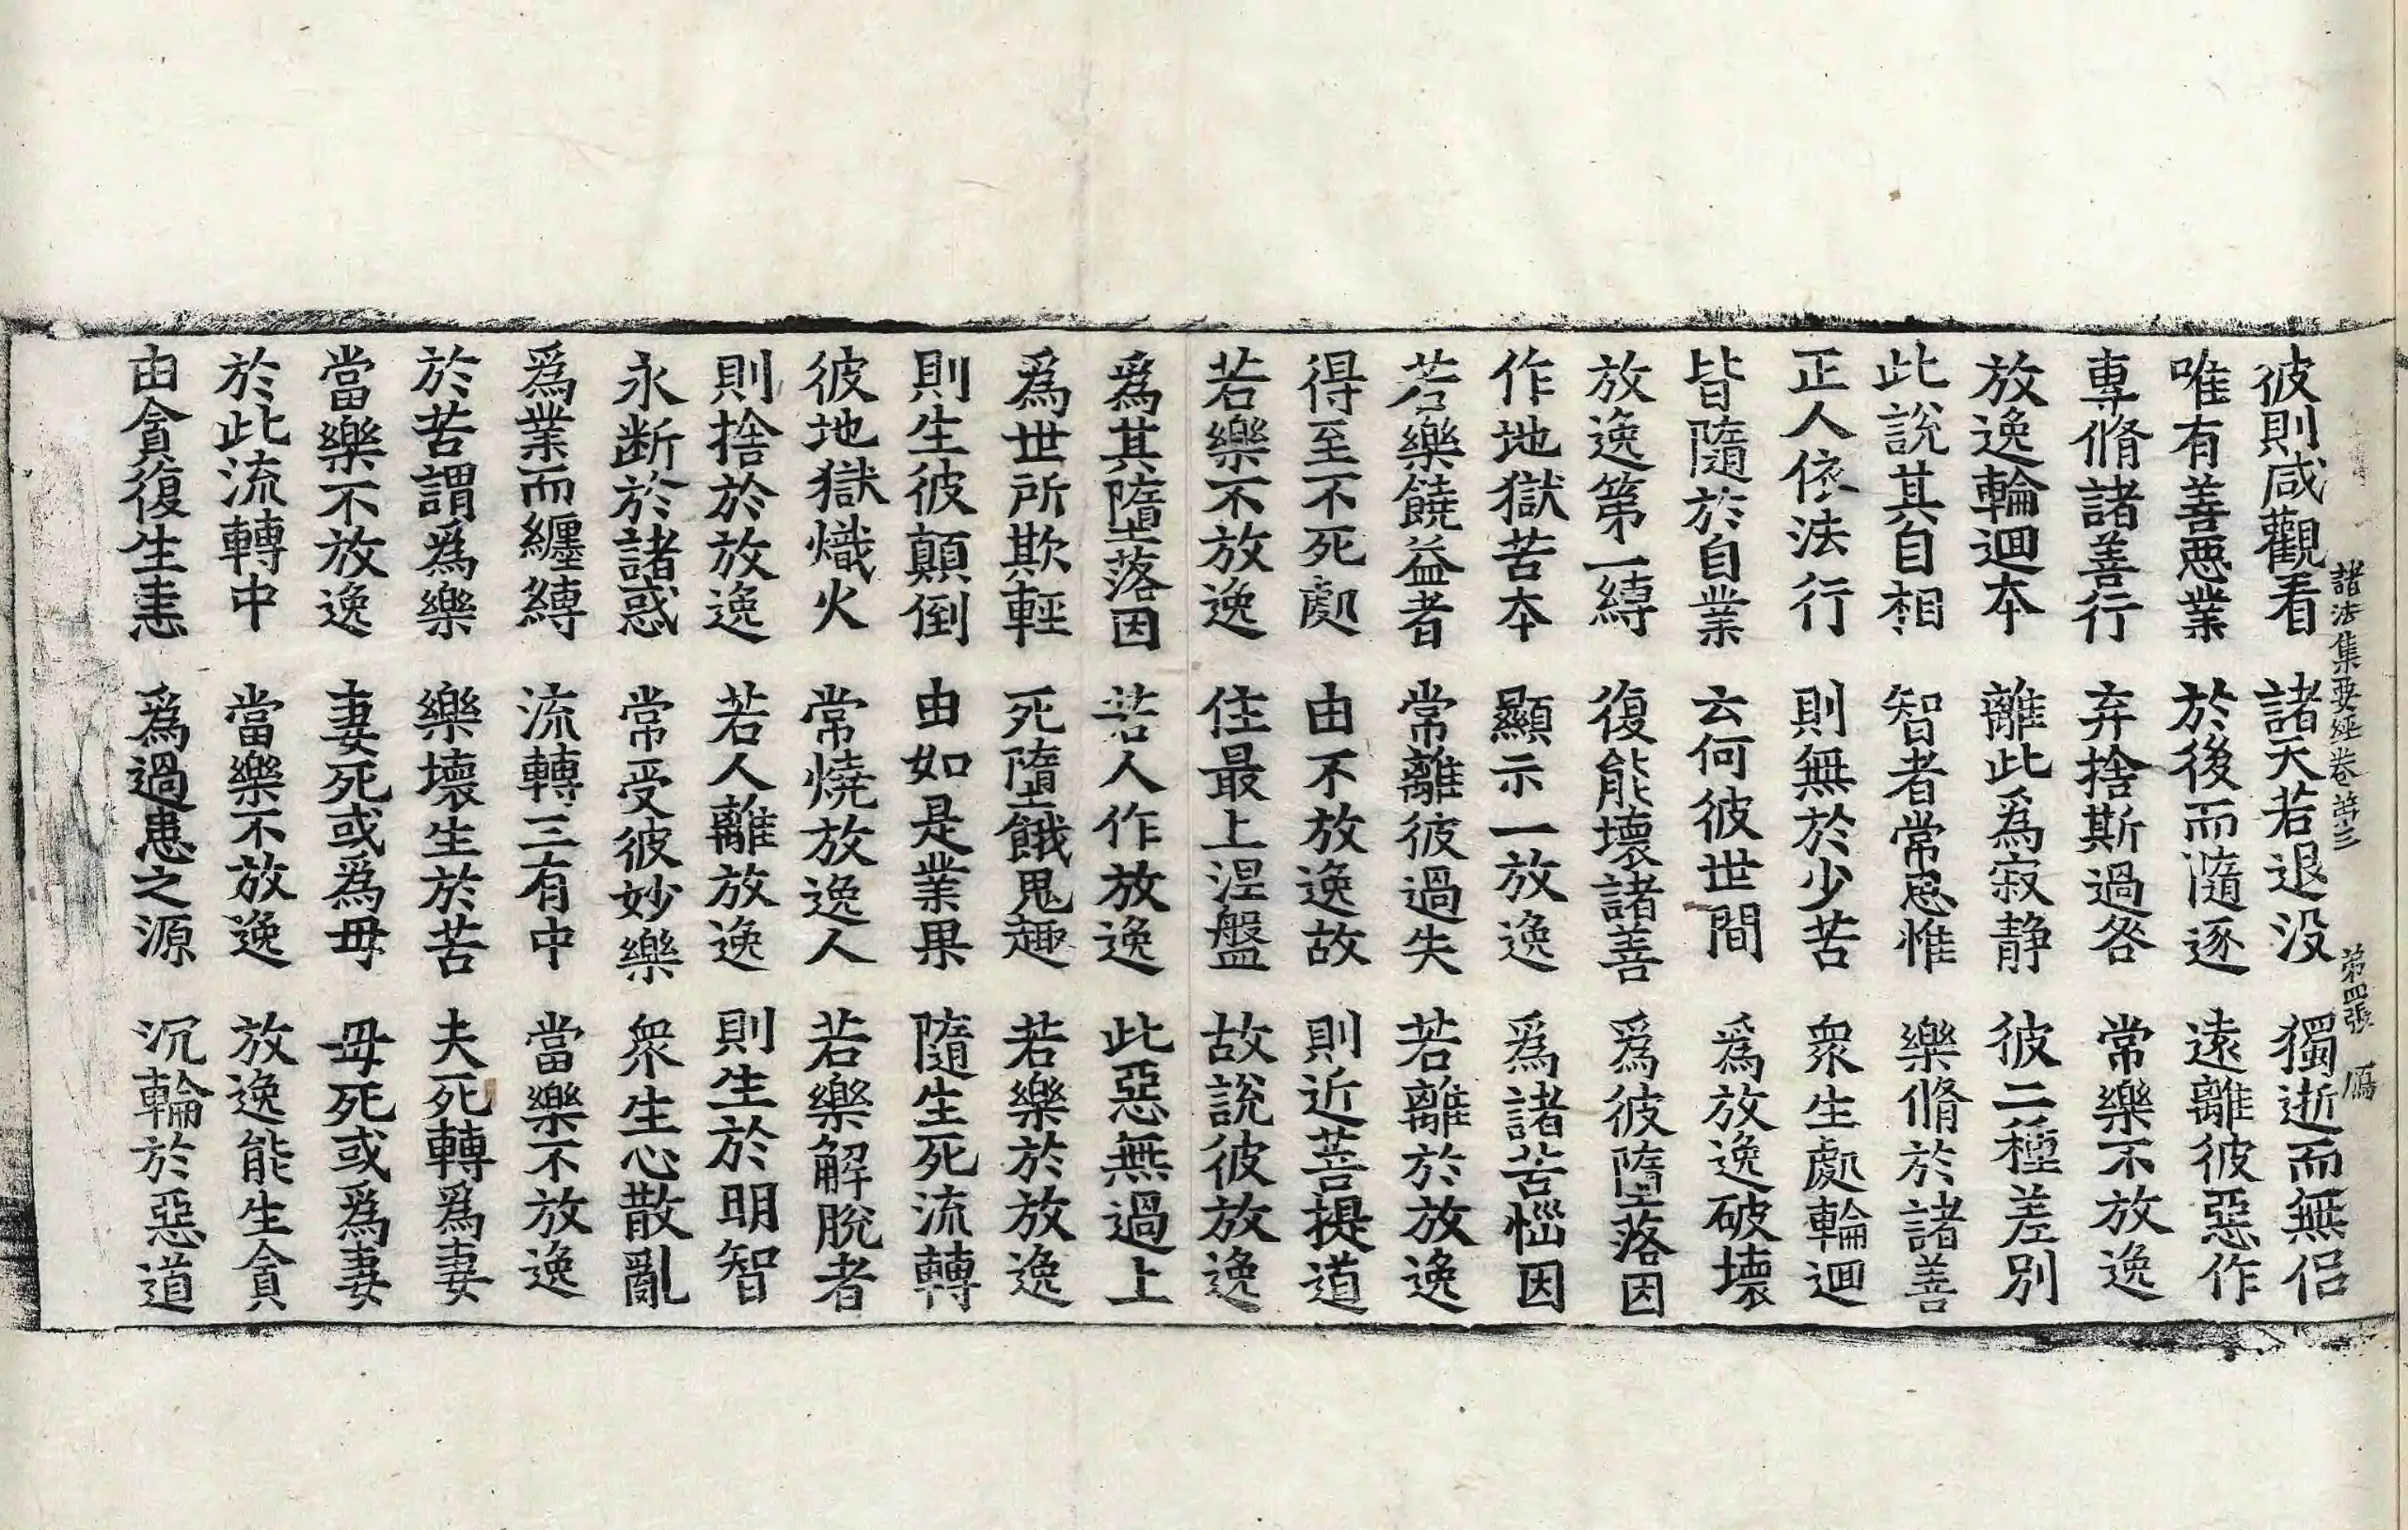 諸法集要經卷苐三 苐四張 鴈
彼則咸觀看 諸天若退没 獨逝而無侣
唯有善惡業 於後而隨逐 逺離彼惡作
專脩諸善行 弃捨斯過咎 常樂不放逸
放逸輪迴本 離此爲寂静 彼二種差别
此說其自相 智者常思惟 樂脩於諸善
正人依法行 則無於少苦 衆生處輪迴
皆隨於自業 云何彼世間 爲放逸破壞
放逸第一縛 復能壞諸善 爲彼墮落因
作地獄苦本 顯示一放逸 爲諸苦惱因
若樂饒益者 常離彼過失 若離於放逸
得至不死處 由不放逸故 則近菩提道
若樂不放逸 住最上涅盤 故說彼放逸
爲其墮落因 若人作放逸 此惡無過上
爲世所欺輕 死墮餓鬼趣 若樂於放逸
則生彼顛倒 由如是業果 隨生死流轉
彼地獄熾火 常燒放逸人 若樂解脫者
則捨於放逸 若人離放逸 則生於明智
永斷於諸惑 常受彼妙樂 衆生心散亂
爲業而纏縛 流轉三有中 當樂不放逸
於苦謂爲樂 樂壞生於苦 夫死轉爲妻
當樂不放逸 妻死或爲母 母死或爲妻
於此流轉中 當樂不放逸 放逸能生貪
由貪復生恚 爲過患之源 沉輪於惡道